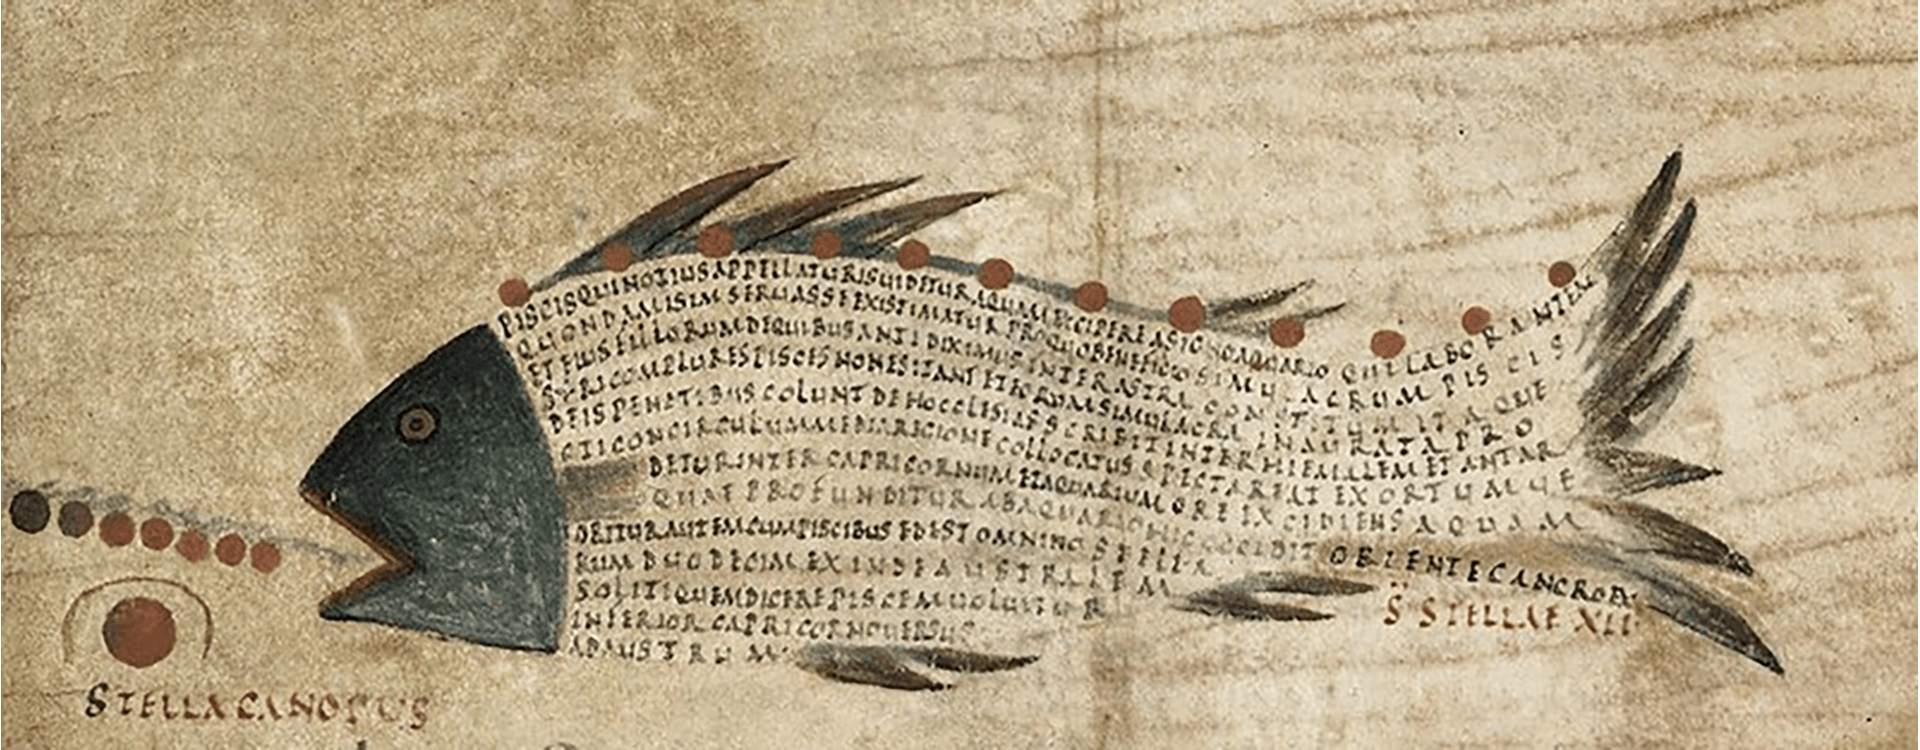 PISCISQUINOTIUSAPPELLATURISUIDETURAQUAMRECIPEREASIGNOAQUARIO QUILABORANTEM
QUONDAMISIMSERUASSEEXISTIMATUR PROQUOBENEFICIOSIMULACRUM PISCIS
ETEIUSFILIORUMDEQUIBUSANTIDIXIMUSINTERASTRA CONSTITUIT ITAQUE
SYRICOMPLURESPISCESNONESITANT ETEORUMSIMULACRA INAURATA PRO
DEISPENATIBUSCOLUNT DEHOCCLESIASSCRIBITINTERHIEMALEMETANTAR
CTICONCIRCULUMMEDIAREGIONECOLLOCATUS SPECTAREAT EXORTUMUE
DETURINTER CAPRICORNUMETAQUARIUMORE EXCIPIENSAQUAM
QUAE PROFUNDITURABAQUARIOHICOCCIDIT ORIENTECANCROEX
ORITURAUTEMCUMPISCIBUS EDEST OMNINO STELLA
RUM DUODECIM EX INDEAUSTRALEM
S̈ STELLAE XII
SOLITIQUEMDICEREPISCEMUOLUITUR
INFERIOR CAPRICORNOUERSUS
ADAUSTRUM
STELLACANOPUS